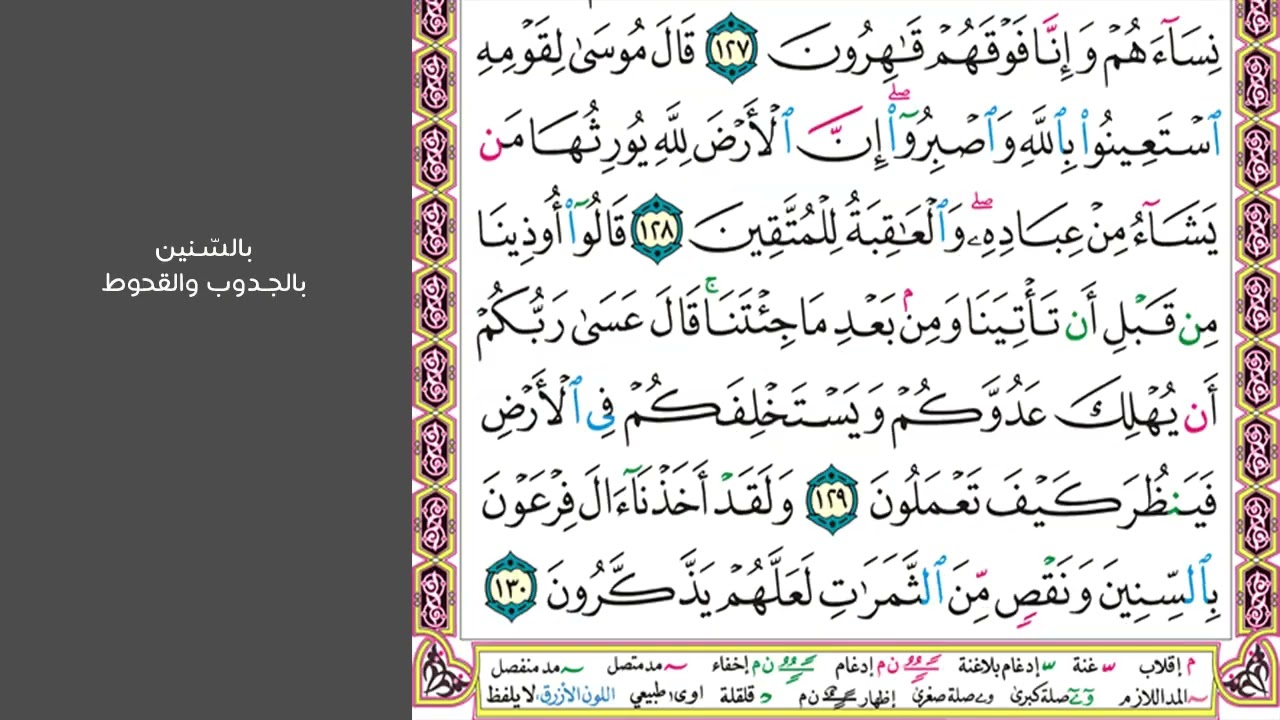 بالسّنين
بالجدوب والقحوط
نِسَآءَهُمْ وَإِنَّا فَوْقَهُمْ قَٰهِرُونَ ١٢٧ قَالَ مُوسَىٰ لِقَوْمِهِ
ٱسْتَعِينُوا۟ بِٱللَّهِ وَٱصْبِرُوٓا۟ ۖ إِنَّ ٱلْأَرْضَ لِلَّهِ يُورِثُهَا مَن
يَشَآءُ مِنْ عِبَادِهِۦ ۖ وَٱلْعَٰقِبَةُ لِلْمُتَّقِينَ ١٢٨ قَالُوٓا۟ أُوذِينَا
مِن قَبْلِ أَن تَأْتِيَنَا وَمِنۢ بَعْدِ مَا جِئْتَنَا ۚ قَالَ عَسَىٰ رَبُّكُمْ
أَن يُهْلِكَ عَدُوَّكُمْ وَيَسْتَخْلِفَكُمْ فِى ٱلْأَرْضِ
فَيَنظُرَ كَيْفَ تَعْمَلُونَ ١٢٩ وَلَقَدْ أَخَذْنَآ ءَالَ فِرْعَوْنَ
بِٱلسِّنِينَ وَنَقْصٍ مِّنَ ٱلثَّمَرَٰتِ لَعَلَّهُمْ يَذَّكَّرُونَ ١٣٠
م إقلاب س غنة س إدغام بلاغنة ن م إدغام ن م إخفاء مد متصل مد منفصل
المد اللازم صلة كبرى صلة صغرى إظهار ن م د قلقلة اوى ا طبيعي اللون الأزرق: لا يلفظ